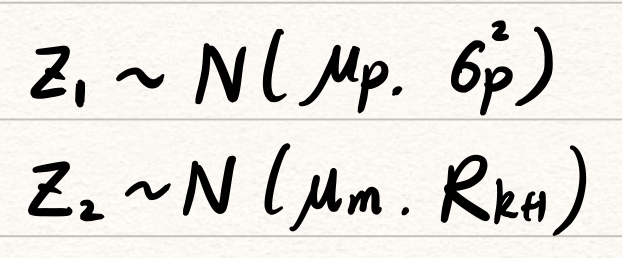 Z₁ ~ N(μp. σp²)
Z₂ ~ N(μm. Rk+1)